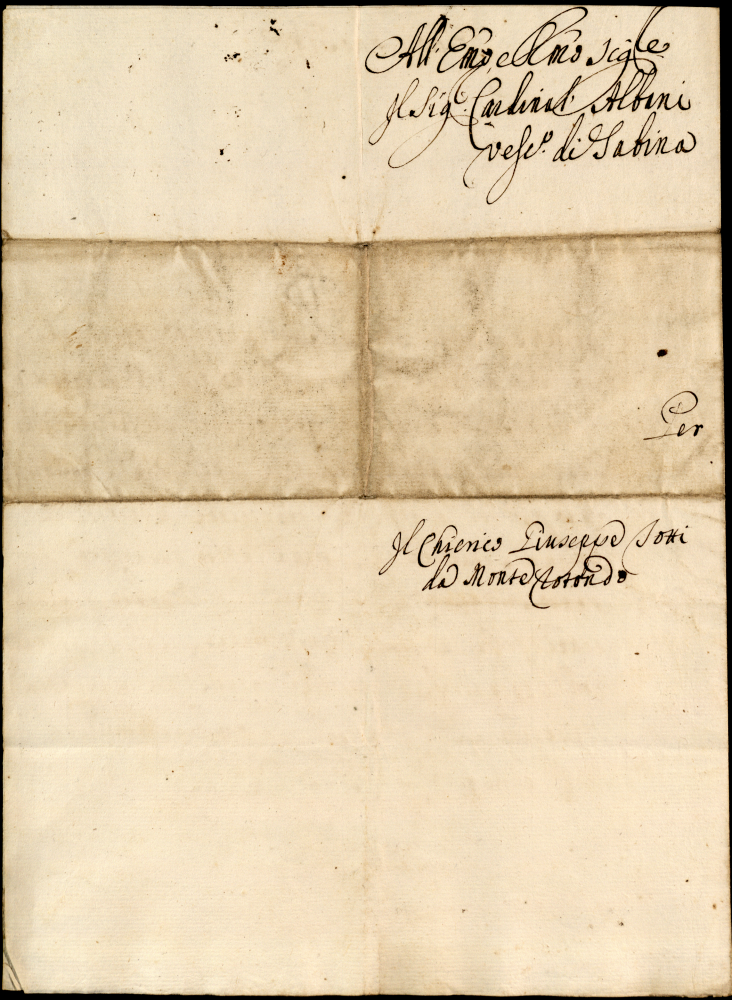 All' Emo, e Rmo Sig.le
Il Sig.r Cardinal Albani
Vesc.o di Sabina
Per
Il Chierico Giuseppe Totti
da Monte Rotondo